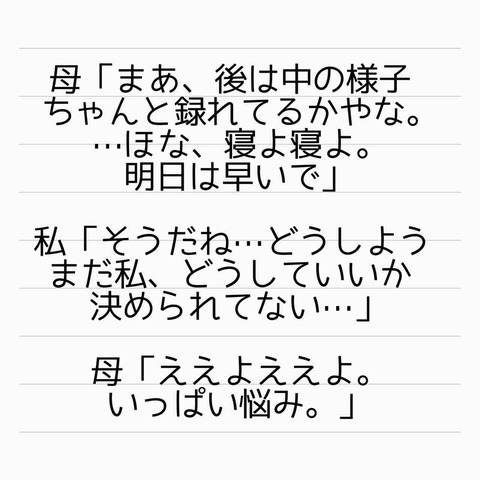 母「まあ、後は中の様子
ちゃんと録れてるかやな。
…ほな、寝よ寝よ。
明日は早いで」
私「そうだね…どうしよう
まだ私、どうしていいか
決められてない…」
母「ええよええよ。
いっぱい悩み。」